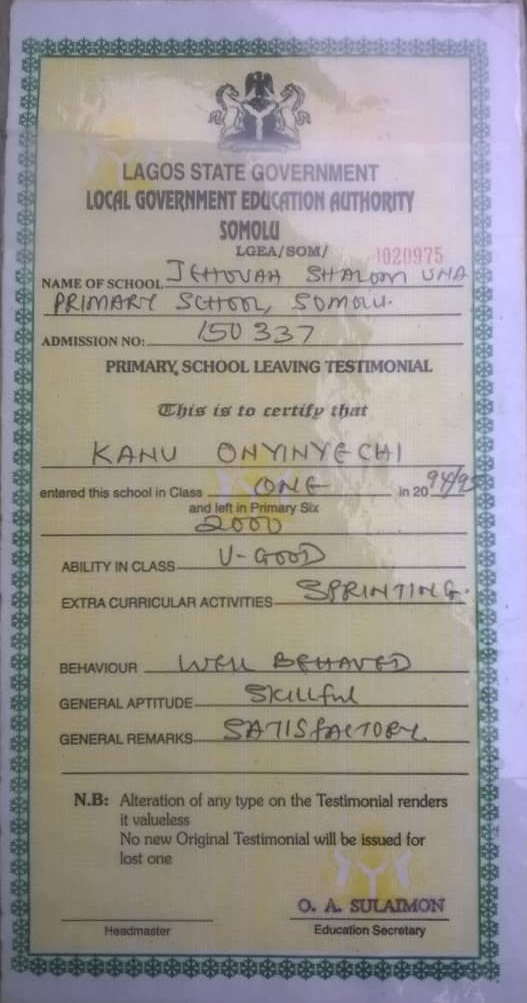 LAGOS STATE GOVERNMENT
LOCAL GOVERNMENT EDUCATION AUTHORITY
SOMOLU
LGEA/SOM/ 1020975
NAME OF SCHOOL JEHOVAH SHALOM UNA
PRIMARY SCHOOL, SOMOLU.
ADMISSION NO: 150337
PRIMARY, SCHOOL LEAVING TESTIMONIAL
This is to certify that
KANU ONYINYECHI
entered this school in Class ONE in 20 94/95
and left in Primary Six
2000
ABILITY IN CLASS V-GOOD
EXTRA CURRICULAR ACTIVITIES SPRINTING.
BEHAVIOUR WELL BEHAVED
GENERAL APTITUDE Skillful
GENERAL REMARKS SATISFACTORY
N.B: Alteration of any type on the Testimonial renders
it valueless
No new Original Testimonial will be issued for
lost one
O. A. SULAIMON
Headmaster Education Secretary